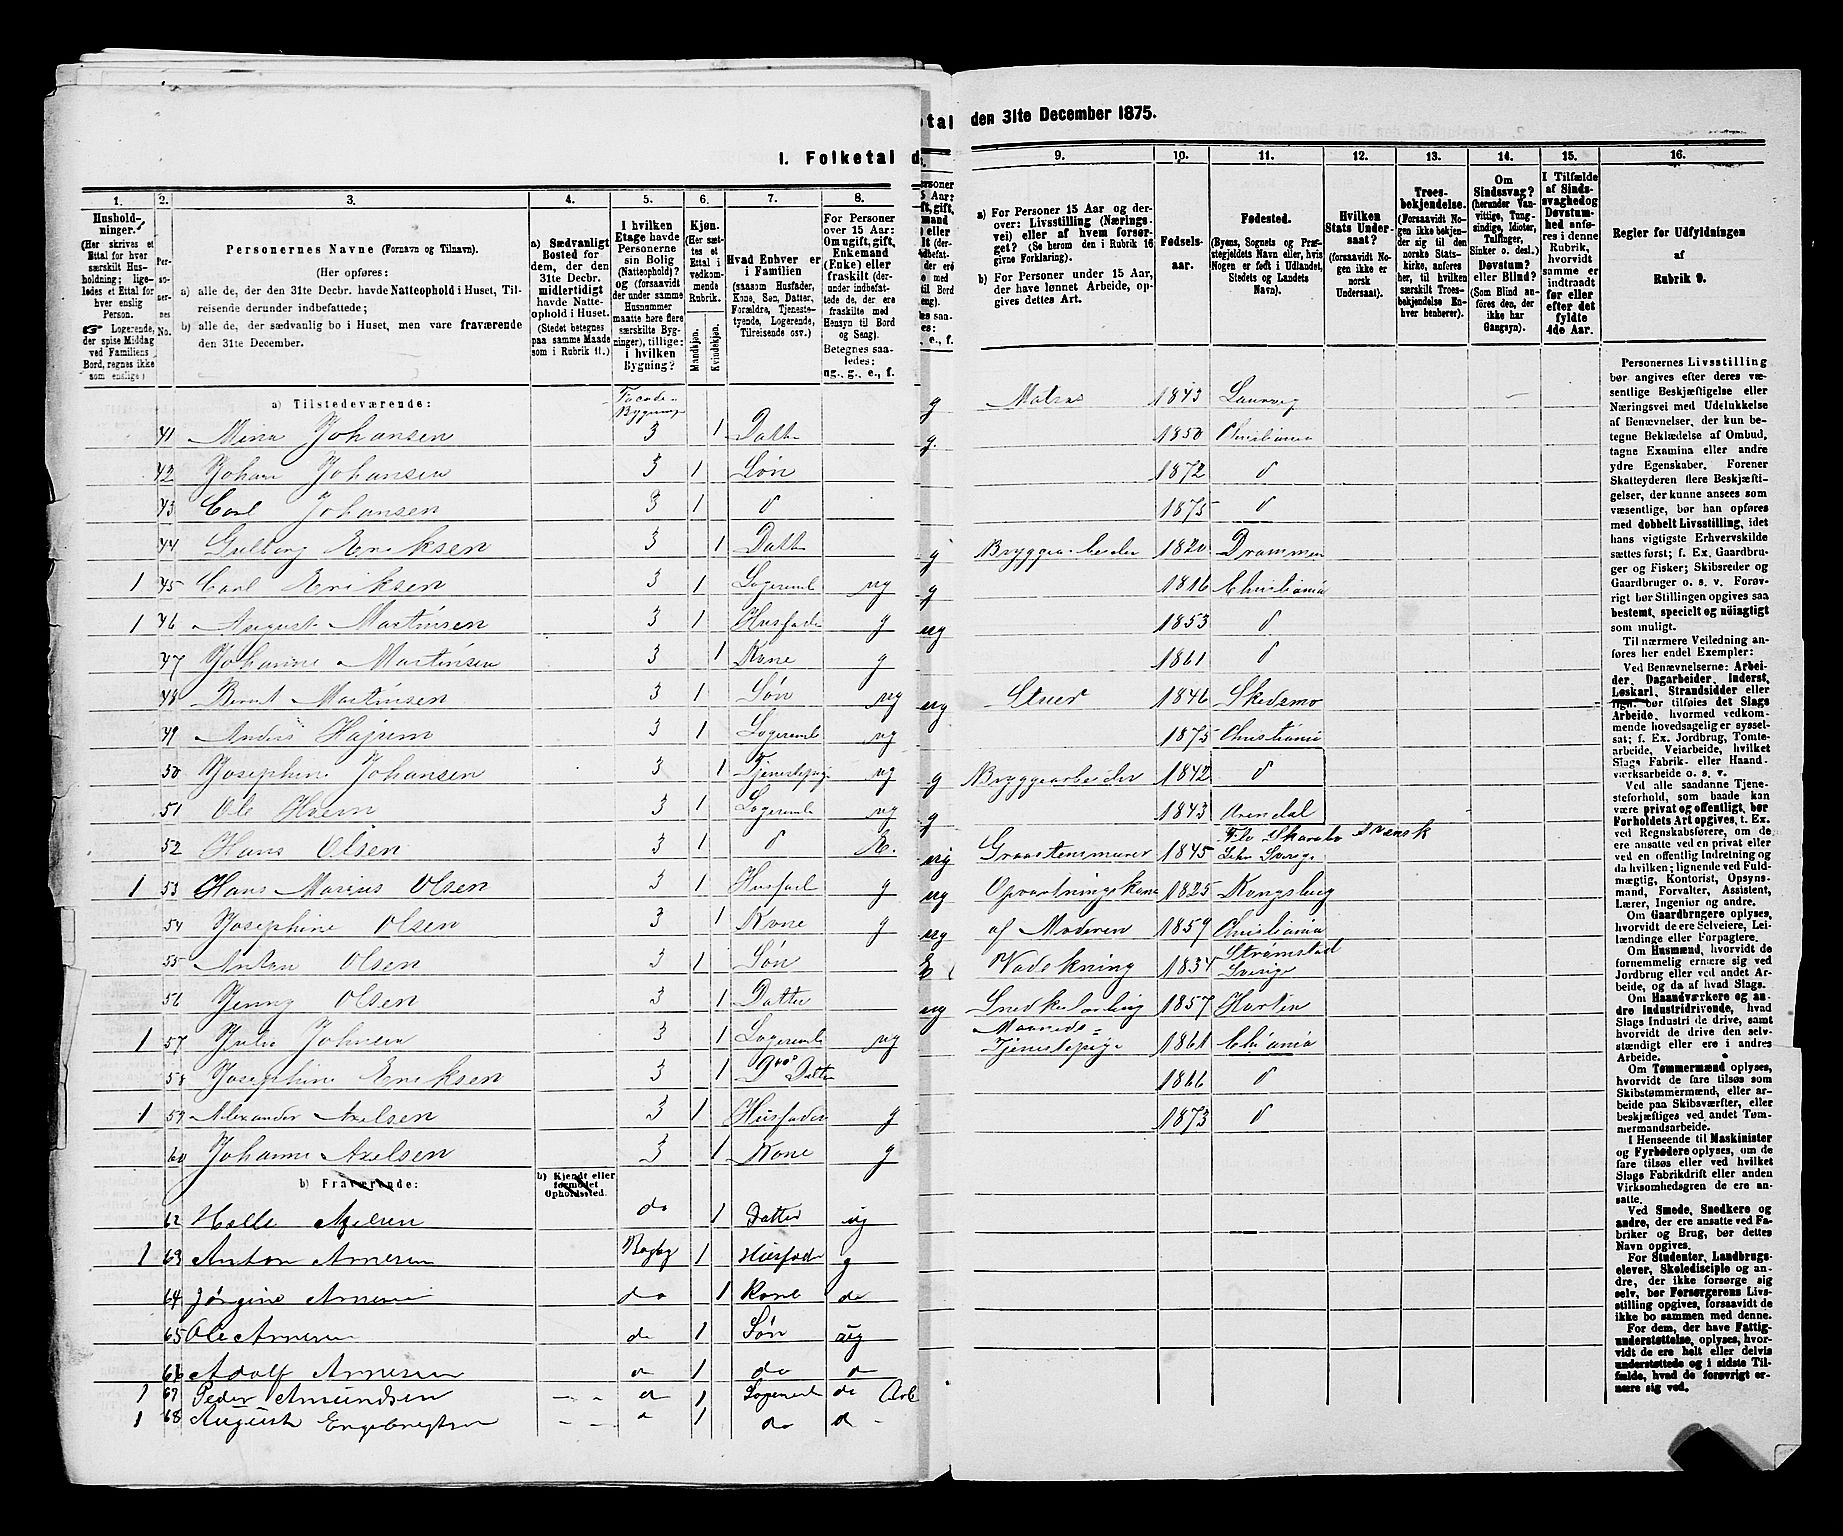 I. Folketal d.
tal den 31te December 1875.
1. 2. 3. 4. 5. 6. 7. 8.
Husholdninger.
(Her skrives et Ettal for hver særskilt Husholdning; ligeledes et Ettal for hver enslig Person.
Logerende, der spise Middag ved Familiens Bord, regnes ikke som enslige.)
Personernes No.
Personernes Navne (Fornavn og Tilnavn).
(Her opføres:
a) alle de, der den 31te Decbr. havde Natteophold i Huset, Tilreisende derunder indbefattede;
b) alle de, der sædvanlig bo i Huset, men vare fraværende den 31te December.
a) Sædvanligt Bosted for dem, der den 31te Decbr. midlertidigt havde Natteophold i Huset.
(Stedet betegnes paa samme Maade som i Rubrik 11.)
I hvilken Etage havde Personerne sin Bolig (Natteophold)? og (forsaavidt der under samme Husnummer maatte høre flere særskilte Bygninger), tillige: i hvilken Bygning?
Kjøn.
(Her sættes et Ettal i vedkommende Rubrik.
Mandkjøn. Kvindekjøn.
Hvad Enhver er i Familien
(saasom Husfader, Kone, Søn, Datter, Forældre, Tjenestetyende, Logerende, Tilreisende osv.)
For Personer over 15 Aar: Om ugift, gift, Enkemand (Enke) eller fraskilt (derunder indbefattede de, der ere fraskilte med Hensyn til Bord og Seng).
Betegnes saaledes: ug., g., e., f.
a) Tilstedeværende: Facade-Bygning
41 Mina Johansen 3 1 Datter
42 Johan Johansen 3 1 Søn
43 Carl Johansen 3 1 d
44 Gulborg Eriksen 3 1 Datter
1 45 Carl Eriksen 3 1 Logerende ug
1 46 August Martinsen 3 1 Husfader g
47 Johanne Martinsen 3 1 Kone g
48 Bernt Martinsen 3 1 Søn ug
49 Anders 3 1 Logerende ug
50 Josephine Johansen 3 1 Tjenestepige ug
51 Ole 3 1 Logerende ug
52 Hans Olsen 3 1 d
1 53 Hans Marius Olsen 3 1 Husfad g
54 Josephine Olsen 3 1 Kone g
55 Anton Olsen 3 1 Søn
56 Jenny Olsen 3 1 Datter
1 57 Julie 3 1 Logerende ug
58 Josephine Eriksen 3 1 Datter
1 59 Alexander Axelsen 3 1 Husfader g
60 Johanne Axelsen 3 1 Kone g
b) Fraværende: b) Kjendt eller formodet Opholdssted.
62 Axelsen do 1 Datter ug
1 63 Anton Arnesen Bagby 1 Husfader g
64 Jørgine Arnesen do 1 Kone do
65 Ole Arnesen do 1 Søn ug
66 Adolf Arnesen d 1 do d
1 67 Peder Amundsen - - d 1 Logerende do Arb
1 68 August Engebregtsen - - d 1 do d -
9. 10. 11. 12. 13. 14. 15. 16.
a) For Personer 15 Aar og derover: Livsstilling (Næringsvei) eller af hvem forsørget? (Se herom den i Rubrik 16 givne Forklaring).
b) For Personer under 15 Aar, der have lønnet Arbeide, opgives dettes Art.
Fødselsaar.
Fødested.
(Byens, Sognets og Præstegjeldets Navn eller, hvis Nogen er født i Udlandet, Stedets og Landets Navn).
Hvilken Stats Undersaat?
(forsaavidt Nogen ikke er norsk Undersaat).
Troesbekjendelse.
(Forsaavidt Nogen ikke bekjender sig til den norske Statskirke, anføres her, til hvilken særskilt Troesbekjendelse Enhver henhører).
Om Sindssvag? (herunder Vanvittige, Tungsindige, Idioter, Tullinger, Sinker o. desl.) Døvstum? eller Blind? (Som Blind anføres den, der ikke har Gangsyn).
I Tilfælde af Sindssvaghed og Døvstumhed anføres i denne Rubrik, hvorvidt samme er indtraadt før eller efter det fyldte 4de Aar.
Regler for Udfyldningen af Rubrik 9.
g Matros 1843 Laurvig
g. 1850 Christiania
1872 d
1875 d
g Bryggearbeider 1820 Drammen
g 1816 Christiania
ug 1853 d
1861 d
ug Stuer 1846 Skedsmo
1875 Christiania
g Bryggearbeider 1842 d
g 1843 Arendal
ug Graastensmurer 1845 Sverige svensk
ug Opvartningskone 1825 Kongsberg
ug af Moderen 1859 Christiania
E Vadskning 1834 Strømstad Sverige
ug Snedkerlærling 1857 Horten
Maaneds= Tjenestepige 1861 Chriania
1866 d
1873 d
Personernes Livsstilling bør angives efter deres væsentlige Beskjæftigelse eller Næringsvei med Udelukkelse af Benævnelser, der kun betegne Beklædelse af Ombud, tagne Examina eller andre ydre Egenskaber. Forener Skatteyderen flere Beskjæftigelser, der kunne ansees som væsentlige, bør han opføres med dobbelt Livsstilling, idet hans vigtigste Erhvervskilde sættes først; f. Ex. Gaardbruger og Fisker; Skibsreder og Gaardbruger o. s. v. Forøvrigt bør Stillingen opgives saa bestemt, specielt og nöiagtigt som muligt.
Til nærmere Veiledning anføres her endel Exempler:
Ved Benævnelserne: Arbeider, Dagarbeider, Inderst, Løskarl, Strandsidder eller lign. bør tilføies det Slags Arbeide, hvormed vedkommende hovedsagelig er sysselsat; f. Ex. Jordbrug, Tomtearbeide, Veiarbeide, hvilket Slags Fabrik- eller Haandværksarbeide o. s. v.
Ved alle saadanne Tjenesteforhold, som baade kan være privat og offentligt, bør Forholdets Art opgives, t. Ex. ved Regnskabsførere, om de ere ansatte ved en privat eller ved en offentlig Indretning og da hvilken; lignende ved Fuldmægtig, Kontorist, Opsynsmand, Forvalter, Assistent, Lærer, Ingeniør og andre.
Om Gaardbrugere oplyses, hvorvidt de ere Selveiere, Leilændinge eller Forpagtere.
Om Husmænd, hvorvidt de fornemmelig ernære sig ved Jordbrug eller ved andet Arbeide, og da af hvad Slags.
Om Haandværkere og andre Industridrivende, hvad Slags Industri de drive, samt hvorvidt de drive den selvstændigt eller ere i andres Arbeide.
Om Tømmermænd oplyses, hvorvidt de fare tilsøs som Skibstømmermænd, eller arbeide paa Skibsværfter, eller beskjæftiges ved andet Tømmermandsarbeide.
I Henseende til Maskinister og Fyrbødere oplyses, om de fare tilsøs eller ved hvilket Slags Fabrikdrift eller anden Virksomhedsgren de ere ansatte.
Ved Smede, Snedkere og andre, der ere ansatte ved Fabriker og Brug, bør dettes Navn opgives.
For Studenter, Landbrugselever, Skoledisciple og andre, der ikke forsørge sig selv, bør Forsørgerens Livsstilling opgives, forsaavidt de ikke bo sammen med denne.
For dem, der have Fattigunderstøttelse, oplyses, hvorvidt de ere helt eller delvis understøttede og i sidste Tilfælde, hvad de forøvrigt ernære sig ved.